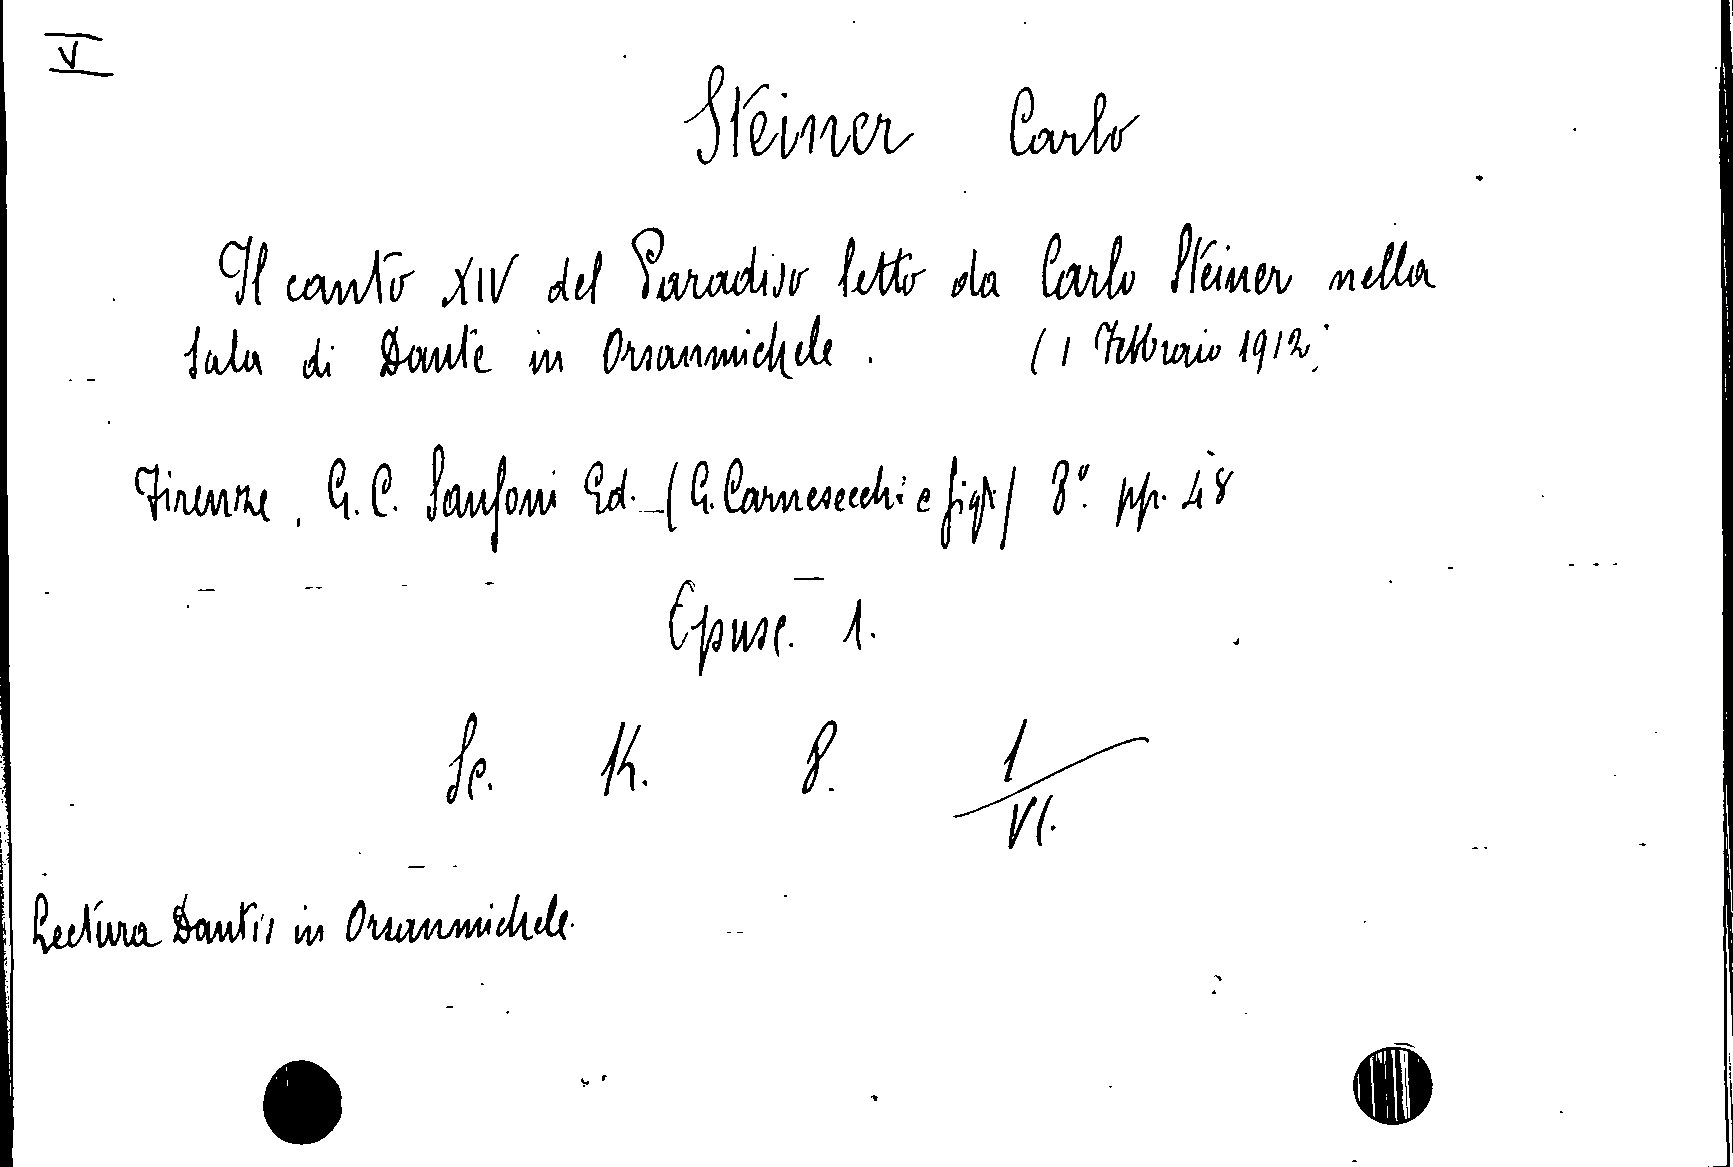 V
Steiner Carlo
Il canto XIV del Paradiso letto da Carlo Steiner nella
Sala di Dante in Orsanmichele. (1 Febbraio 1912)
Firenze, G. C. Sansoni Ed. - (G. Carnesecchi e figli) 8º. pp. 48
Opusc. 1.
Sc. K. 8. 1/VI.
Lectura Dantis in Orsanmichele.